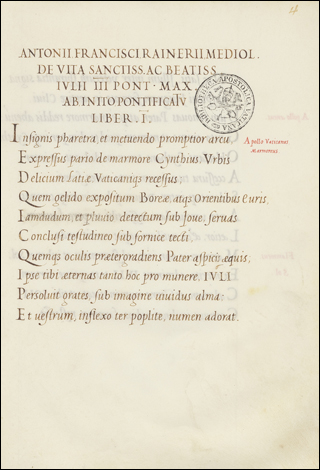 ANTONII FRANCISCI RAINERII MEDIOL.
DE VITA SANCTISS. AC BEATISS
IVLII III PONT. MAX.
AB INITIO PONTIFICATV
LIBER. I
Insignis pharetra, et metuendo promptior arcu,
Apollo Vaticanus
marmoreus.
Expressus pario de marmore Cynthius, Vrbis
Delicium latiæ Vaticaniq; recessus:
Quem gelido expositum Boreæ atq; Orientibus Euris,
Iamdudum, et pluuio detectum sub Joue, seruas
Conclusi testudineo sub fornice tecti:
Quemq; oculis prætergradiens Pater aspicis æquis,
Ipse tibi æternas tanto hoc pro munere, IVLI
Persoluit grates, sub imagine uiuidus alma:
Et uestrum, inflexo ter poplite, numen adorat.